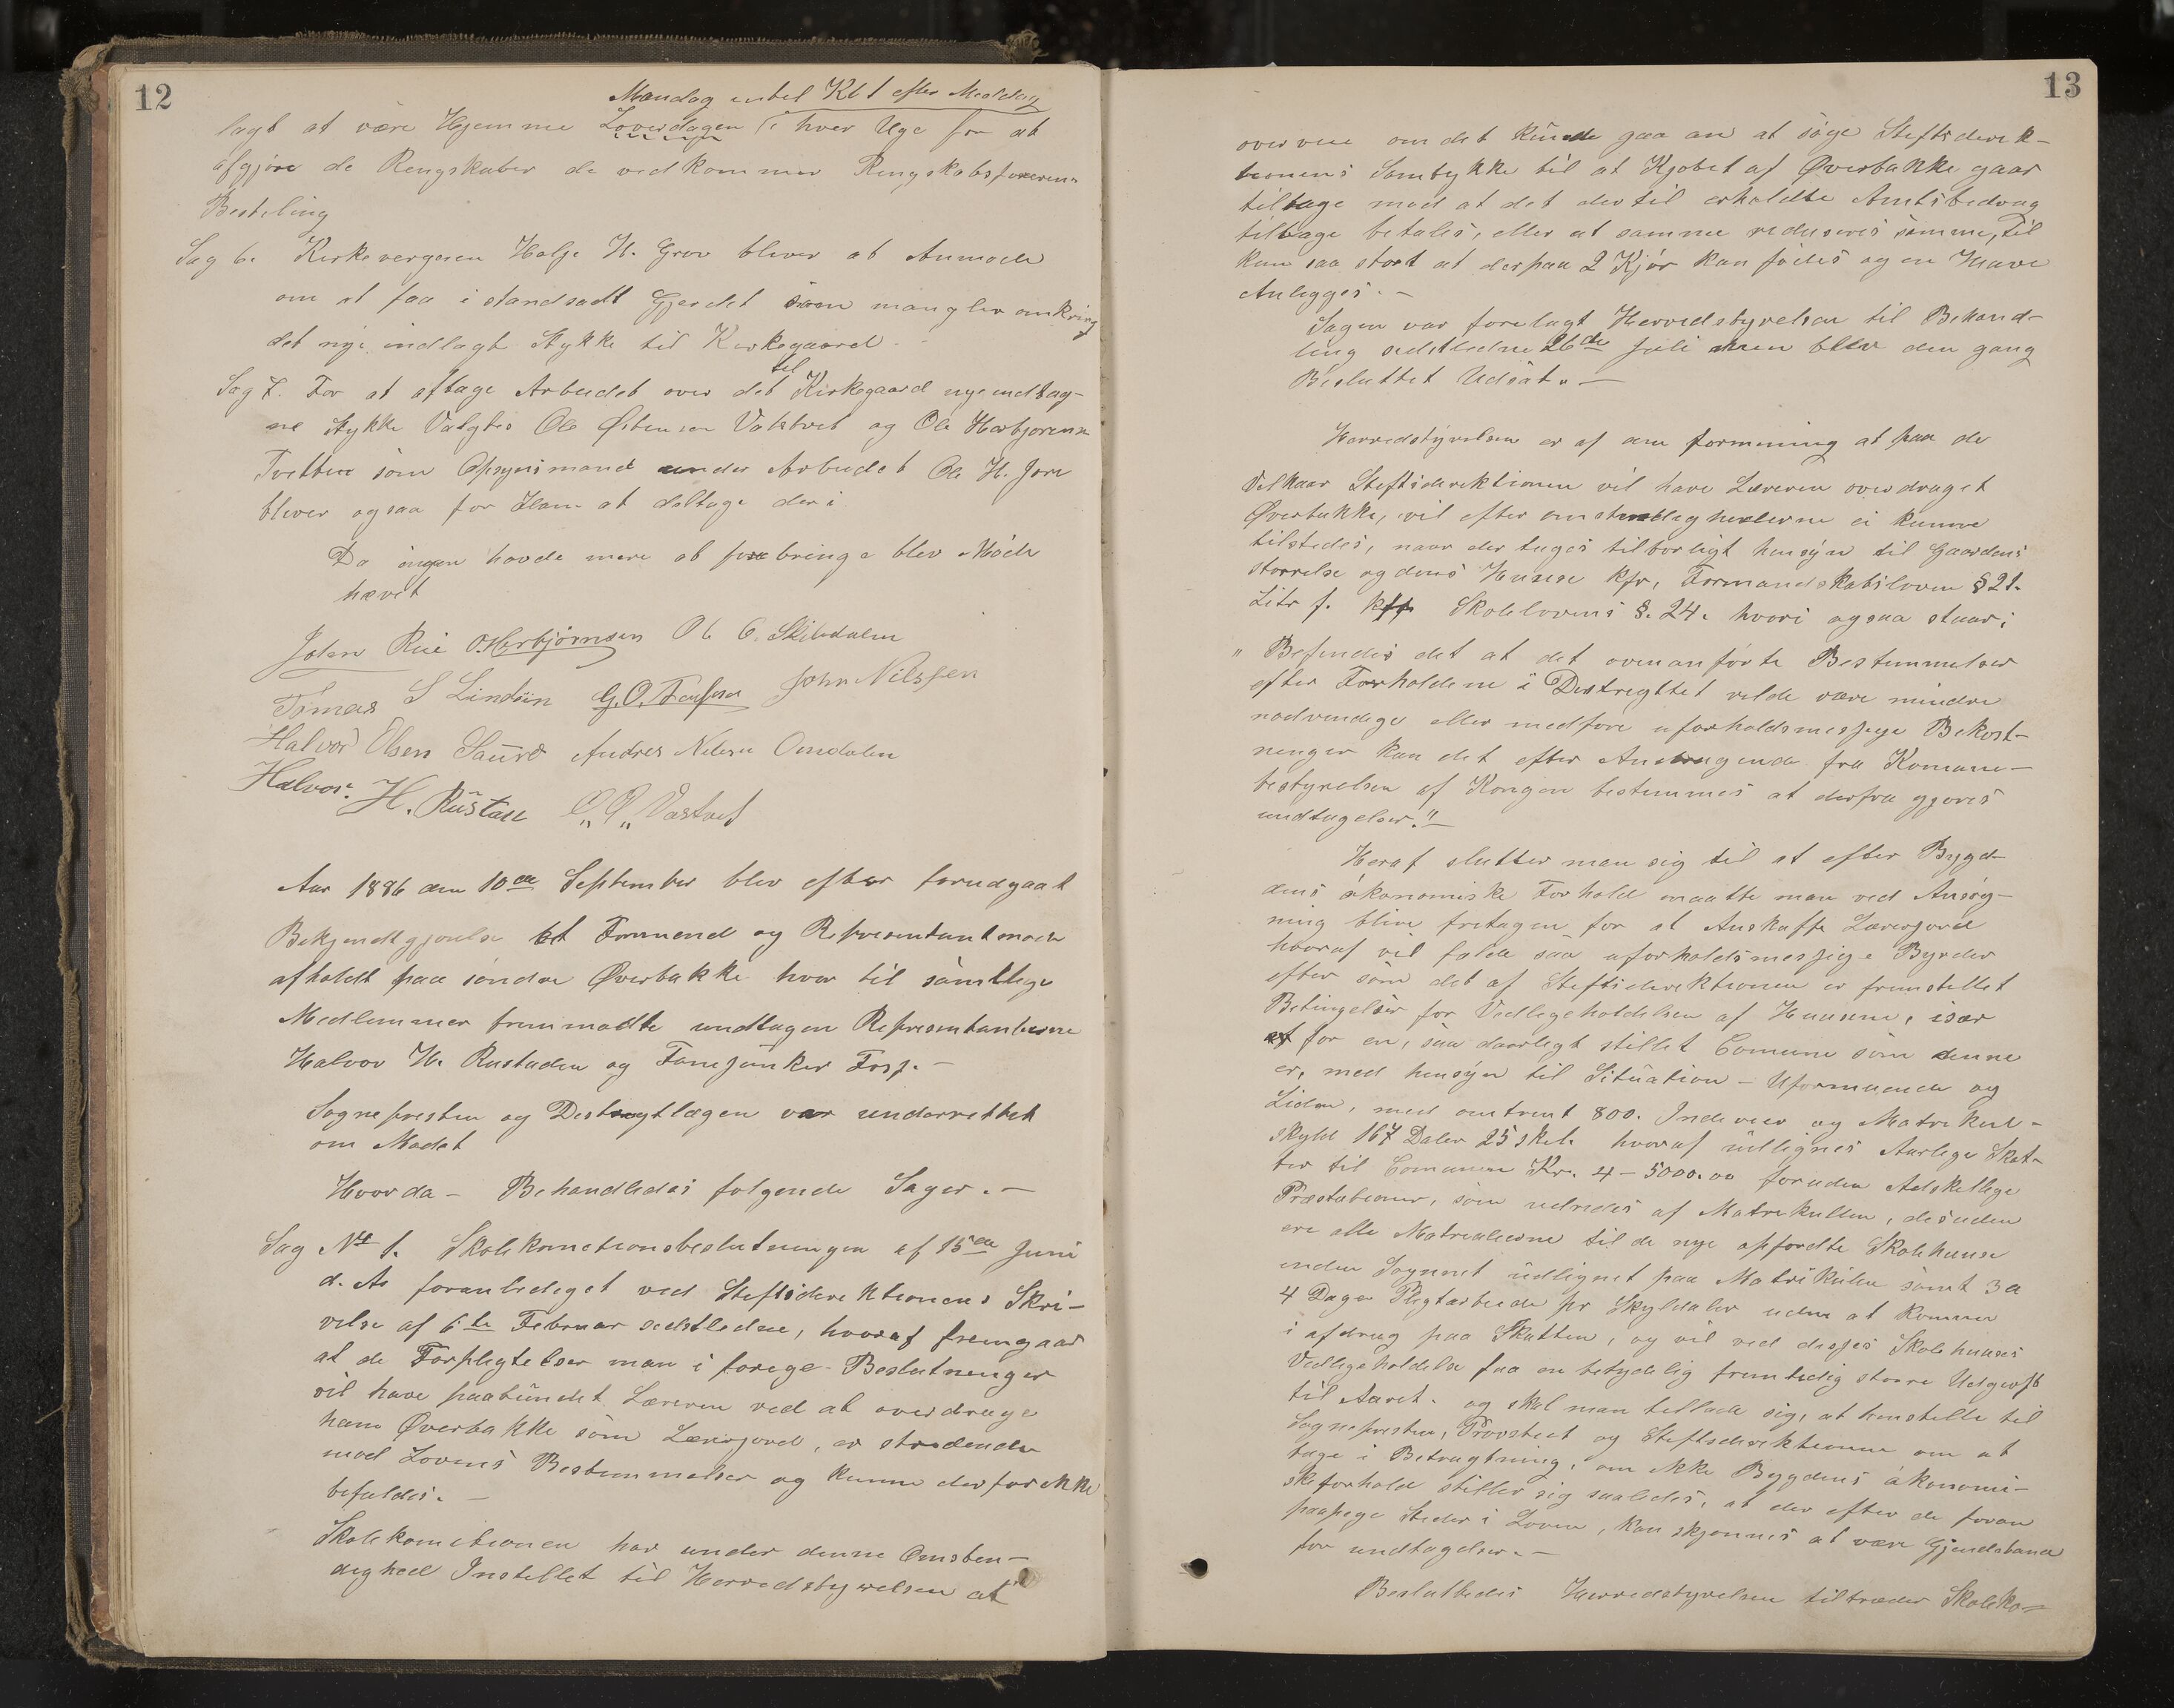 12
Mandag indtil Kl 1 efter Meddag
lagt at være Hjemme Loverdagen i hver Uge for at
afgjøre de Rengskaber de vedkommer Rengskabsføreren
Besteling
Sag 6. Kirkevergeren Halje H. Grov bliver at Anmode
om at faa i standsadt Gjerdet som mangler omkring
det nye indlagt Stykke til Kirkegaard
Sag 7. For at aftage Arbeidet over det til Kirkegaard nye indtag-
ne Stykke Valgtes Ole Østensen Vatstvet og Ole Herbjørnsen
Tvetten som Opsynsmand under Arbeidet Ole H. Jore
bliver ogsaa for Ham at deltage deri
Da ingen havde mere at frebringe blev Møde
hævet
John Rui O. Herbjørnsen Ol. C. Skibdalen
Tomas S Lindsin G. O. John Nilssen
Halvor Olsen Saure Andres Nilsen Omdalen
Halvor H. Rustad O. O. Vastvet
Aar 1886 den 10de September blev efter forudgaat
Bekjendtgjørelse et Formend og Representantmøde
afholdt paa søndre Øverbakke hvor til samtlege
Medlemmer fremmødte undtagen Representanterne
Halvor H. Rustaden og Fanejunker Fosz. —
Sognepresten og Destregtlægen var underrettet
om Mødet
Hvorda - Behandledes følgende Sager. —
Sag No 1. Skolekometionsbeslutningen af 15de Juni
d. A. foranlediget ved Steftsderektionens Skri-
velse af 6te Februar sedstledne, hvoraf fremgaar
at de Forpligtelser man i forege Beslutnenger
vil have paabundet Læreren ved at overdrage
ham Øverbakke som Lærerjord, er stredende
mod Lovens Bestemmelser og kunne derfor ekke
befaldes. —
Skolekometionen har under denne Omsten-
deghed Instellet til Herredstyrelsen at
13
overveie om det kunde gaa an at søge Steftsderek-
tionens Samtykke til at Kjøbet af Øverbakke gaar
tilbage mod at det dertil erholdte Amtsbedrag
tilbage betales, eller at samme reduseres semme, til
kun saa stort at derpaa 2 Kjør kan fødes og en Have
Anlegges. —
Sagen var forelagt Herredstyrelsen til Behand-
ling sedstledne 26de Juli men blev den gang
Besluttet Udsat. —
Herredstyrelsen er af den formening at paa de
Velkaar Steftsderektionen vil have Læreren overdraget
Øverbakke, vil efter omstendeghederne ei kunne
tilstedes, naar der tages tilbørligt hensyn til Gaardens
størrelse og dens Husese kfr, Formandskabsloven § 21.
Litr f. kff Skolelovens §. 24. hvori ogsaa staar;
" Befendes det at det ovenanførte Bestemmelser
efter Forholdene i Destregttet vilde være mindre
nødvendige eller medføre uforholdsmessege Bekost-
nenger kan det efter Andragende fra Komune-
bestyrelsen af Kongen bestemmes at derfra gjøres
undtagelser." —
Heraf slutter man sig til at efter Bygd-
dens økonomiske Forhold maatte man ved Ansøg-
ning blive fretagen for at Anskaffe Lærerjord
hvoraf vil følde saa uforholdsmessige Byrder
efter som det af Steftsderektionen er fremstellet
Betingelser for Vedlegeholdelsen af Husene, især
for en, saa daarligt stillet Comune som denne
er, med hensyn til Situation - Uformuende og
Liden, med omtrent 800. Indevner og Matrekul-
skyld 167 Daler 25 skel. hvoraf udlegnes Aarlege Skat-
ter til Comunen Kr. 4 - 5000.00 foruden Adskellege
Præstationer, som udredes af Matrekullen, desuden
ere alle Matrealierne til de nye opførdte Skolehuse
inden Sognnet udlignet paa Matrikulen samt 3 a
4 Dage Plegtarbeide pr Skyldaler uden at komme
i afdrag paa Skatten, og vil ved desses Skolehuses
Vedlegeholdelse faa en betydelig fremtidig større Udgivft
til Aaret. og skal man tellade sig, at henstelle til
Sognepresten, Provstiet og Steftsderektionen om at
tage i Betragtning, om ikke Bygdens økonomi-
ske forhold stiller sig saaledes, at der efter de foran
paapege Steder i Loven, kan skjønnes at være Gjendstand
for undtagelser. —
Besluttedes Herredstyrelsen tiltræder Skoleko=